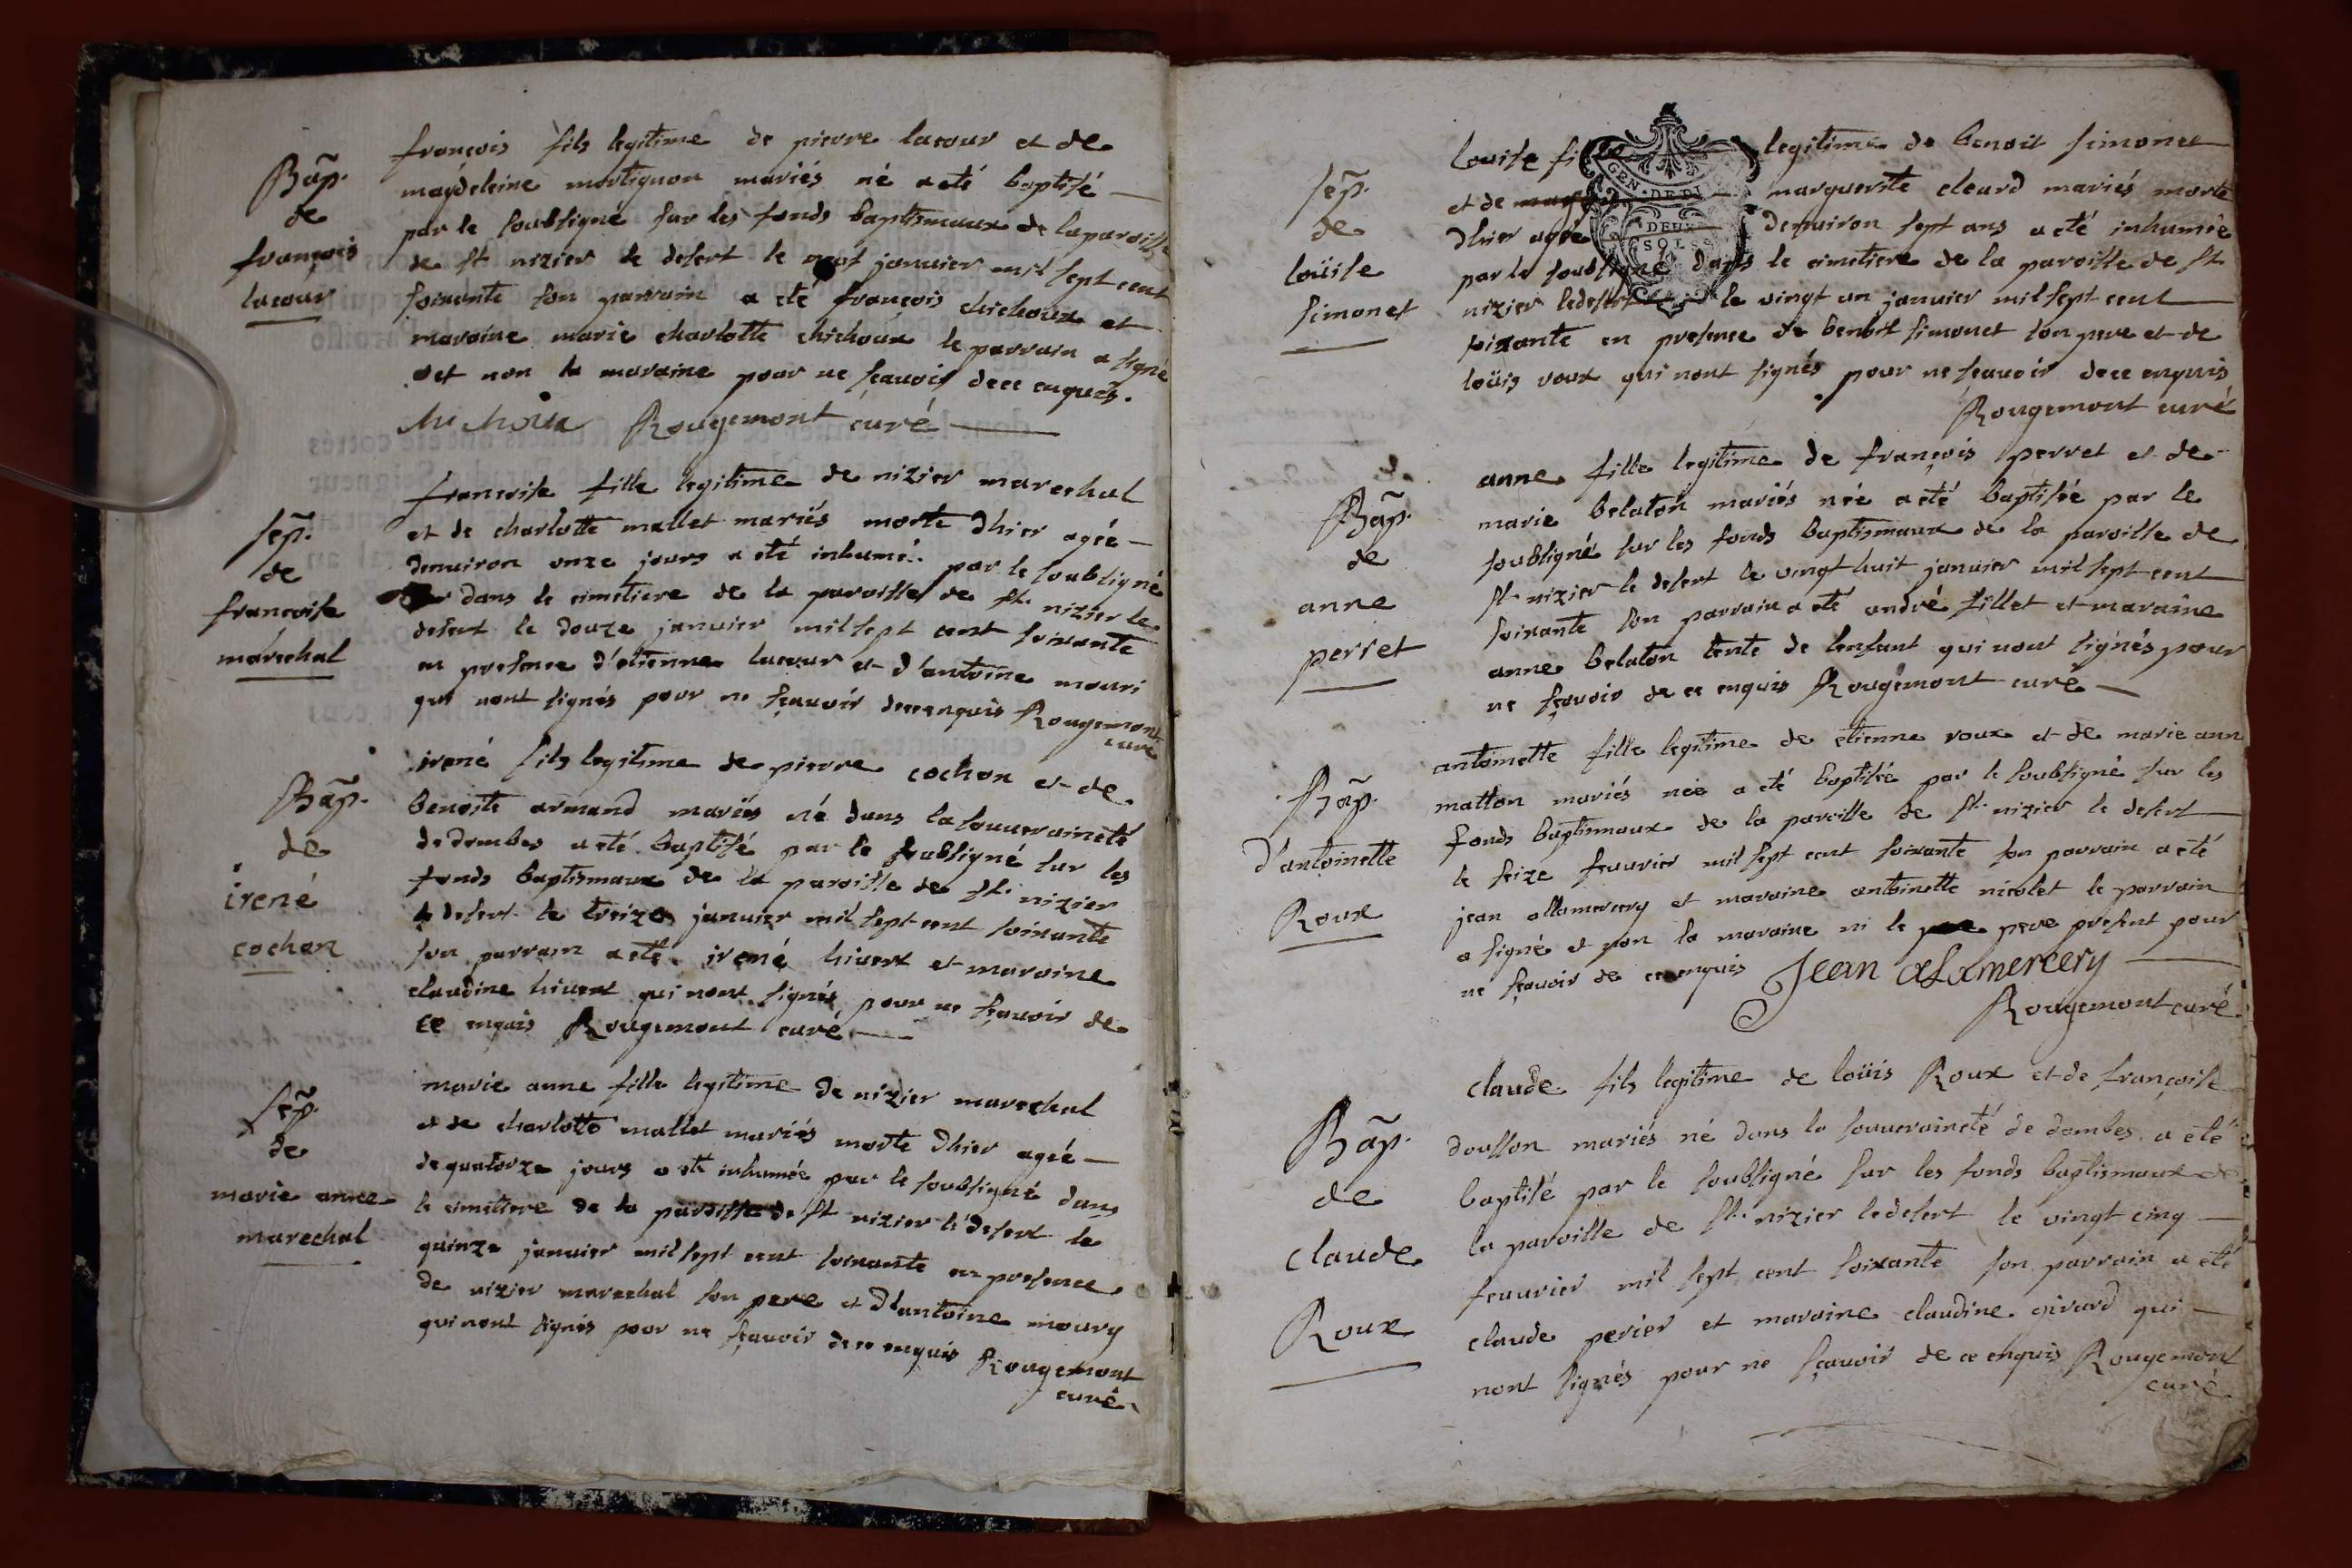 Bãp.
de
françois
lacour
françois fils legitime de pierre lacour et de
magdeleine montignon mariés né a eté baptisé
par le soubsigné sur les fonds baptismaux de la paroisse
de st nizier le desert le neuf januier mil sept cent
soixante son parrain a eté françois chichoux et
maraine marie charlotte chichoux le parrain a signé
et non la maraine pour ne sçauoir de ce enquis.
chichoux Rougemont curé
sep̃.
de
francoise
maréchal
francoise fille legitime de nizier marechal
et de charlotte mallet mariés morte dhier agée
denuiron onze jours a eté inhumé par le soubsigné
dans le cimetiere de la paroisse de st. nizier le
desert le douze januier mil sept cent soixante
en presence d'etienne lacour et d'antoine mouri
qui nont signés pour ne sçauoir de ce enquis Rougemont
curé
Bãp.
de
irené
cochon
irené fils legitime de pierre cochon et de
benoite armand mariés né dans la souueraineté
de dombes a eté baptisé par le soubsigné sur les
fonds baptismaux de la paroisse de st. nizier
le desert le treize januier mil sept cent soixante
son parrain a eté irené hiuert et maraine
claudine hiuert qui nont signés pour ne sçauoir de
ce enquis Rougemont curé
sep̃.
de
marie anne
marechal
marie anne fille legitime de nizier marechal
et de charlotte mallet mariés morte dhier agée
de quatorze jours a eté inhumée par le soubsigné dans
le cimetiere de la paroisse de st nizier le desert le
quinze januier mil sept cent soixante en presence
de nizier marechal son pere et d'antoine moury
qui nont signés pour ne sçauoir de ce enquis Rougemont
curé
sep̃.
de
loüise
simonet
GEN. DE D
DEUX
SOLS
Louise fille legitime de benoit simonet
et de marguerite cleurd mariés morte
dhier agée denuiron sept ans a eté inhumée
par le soubsigné dans le cimetiere de la paroisse de st
nizier le desert le vingt un januier mil sept cent
soixante en presence de benoit simonet son pere et de
loüis roux qui nont signés pour ne sçauoir de ce enquis
Rougemont curé
Bãp.
de
anne
perret
anne fille legitime de françois perret et de
marie belaton mariés née a eté baptisée par le
soubsigné sur les fonds baptismaux de la paroisse de
st. nizier le desert le vingt huit januier mil sept cent
soixante son parrain a eté andré fillet et maraine
anne belaton tente de lenfant qui nont signés pour
ne sçauoir de ce enquis Rougemont curé
Bãp.
d'antoinette
Roux
antoinette fille legitime de etienne roux et de marie ann
matton mariés née a eté baptisée par le soubsigné sur les
fonds baptismaux de la paroisse de st. nizier le desert
le seize feuurier mil sept cent soixante son parrain a eté
jean allamercery et maraine antoinette nicolet le parrain
a signé et non la maraine ni le pere present pour
ne sçauoir de ce enquis Jean alamercery
Rougemont curé
Bãp.
de
claude
Roux
claude fils legitime de loüis Roux et de françoise
dousson mariés né dans la souueraineté de dombes a eté
baptisé par le soubsigné sur les fonds baptismaux de
la paroisse de st. nizier le desert le vingt cinq
feuurier mil sept cent soixante son parrain a eté
claude perier et maraine claudine girard qui
nont signés pour ne sçauoir de ce enquis Rougemont
curé